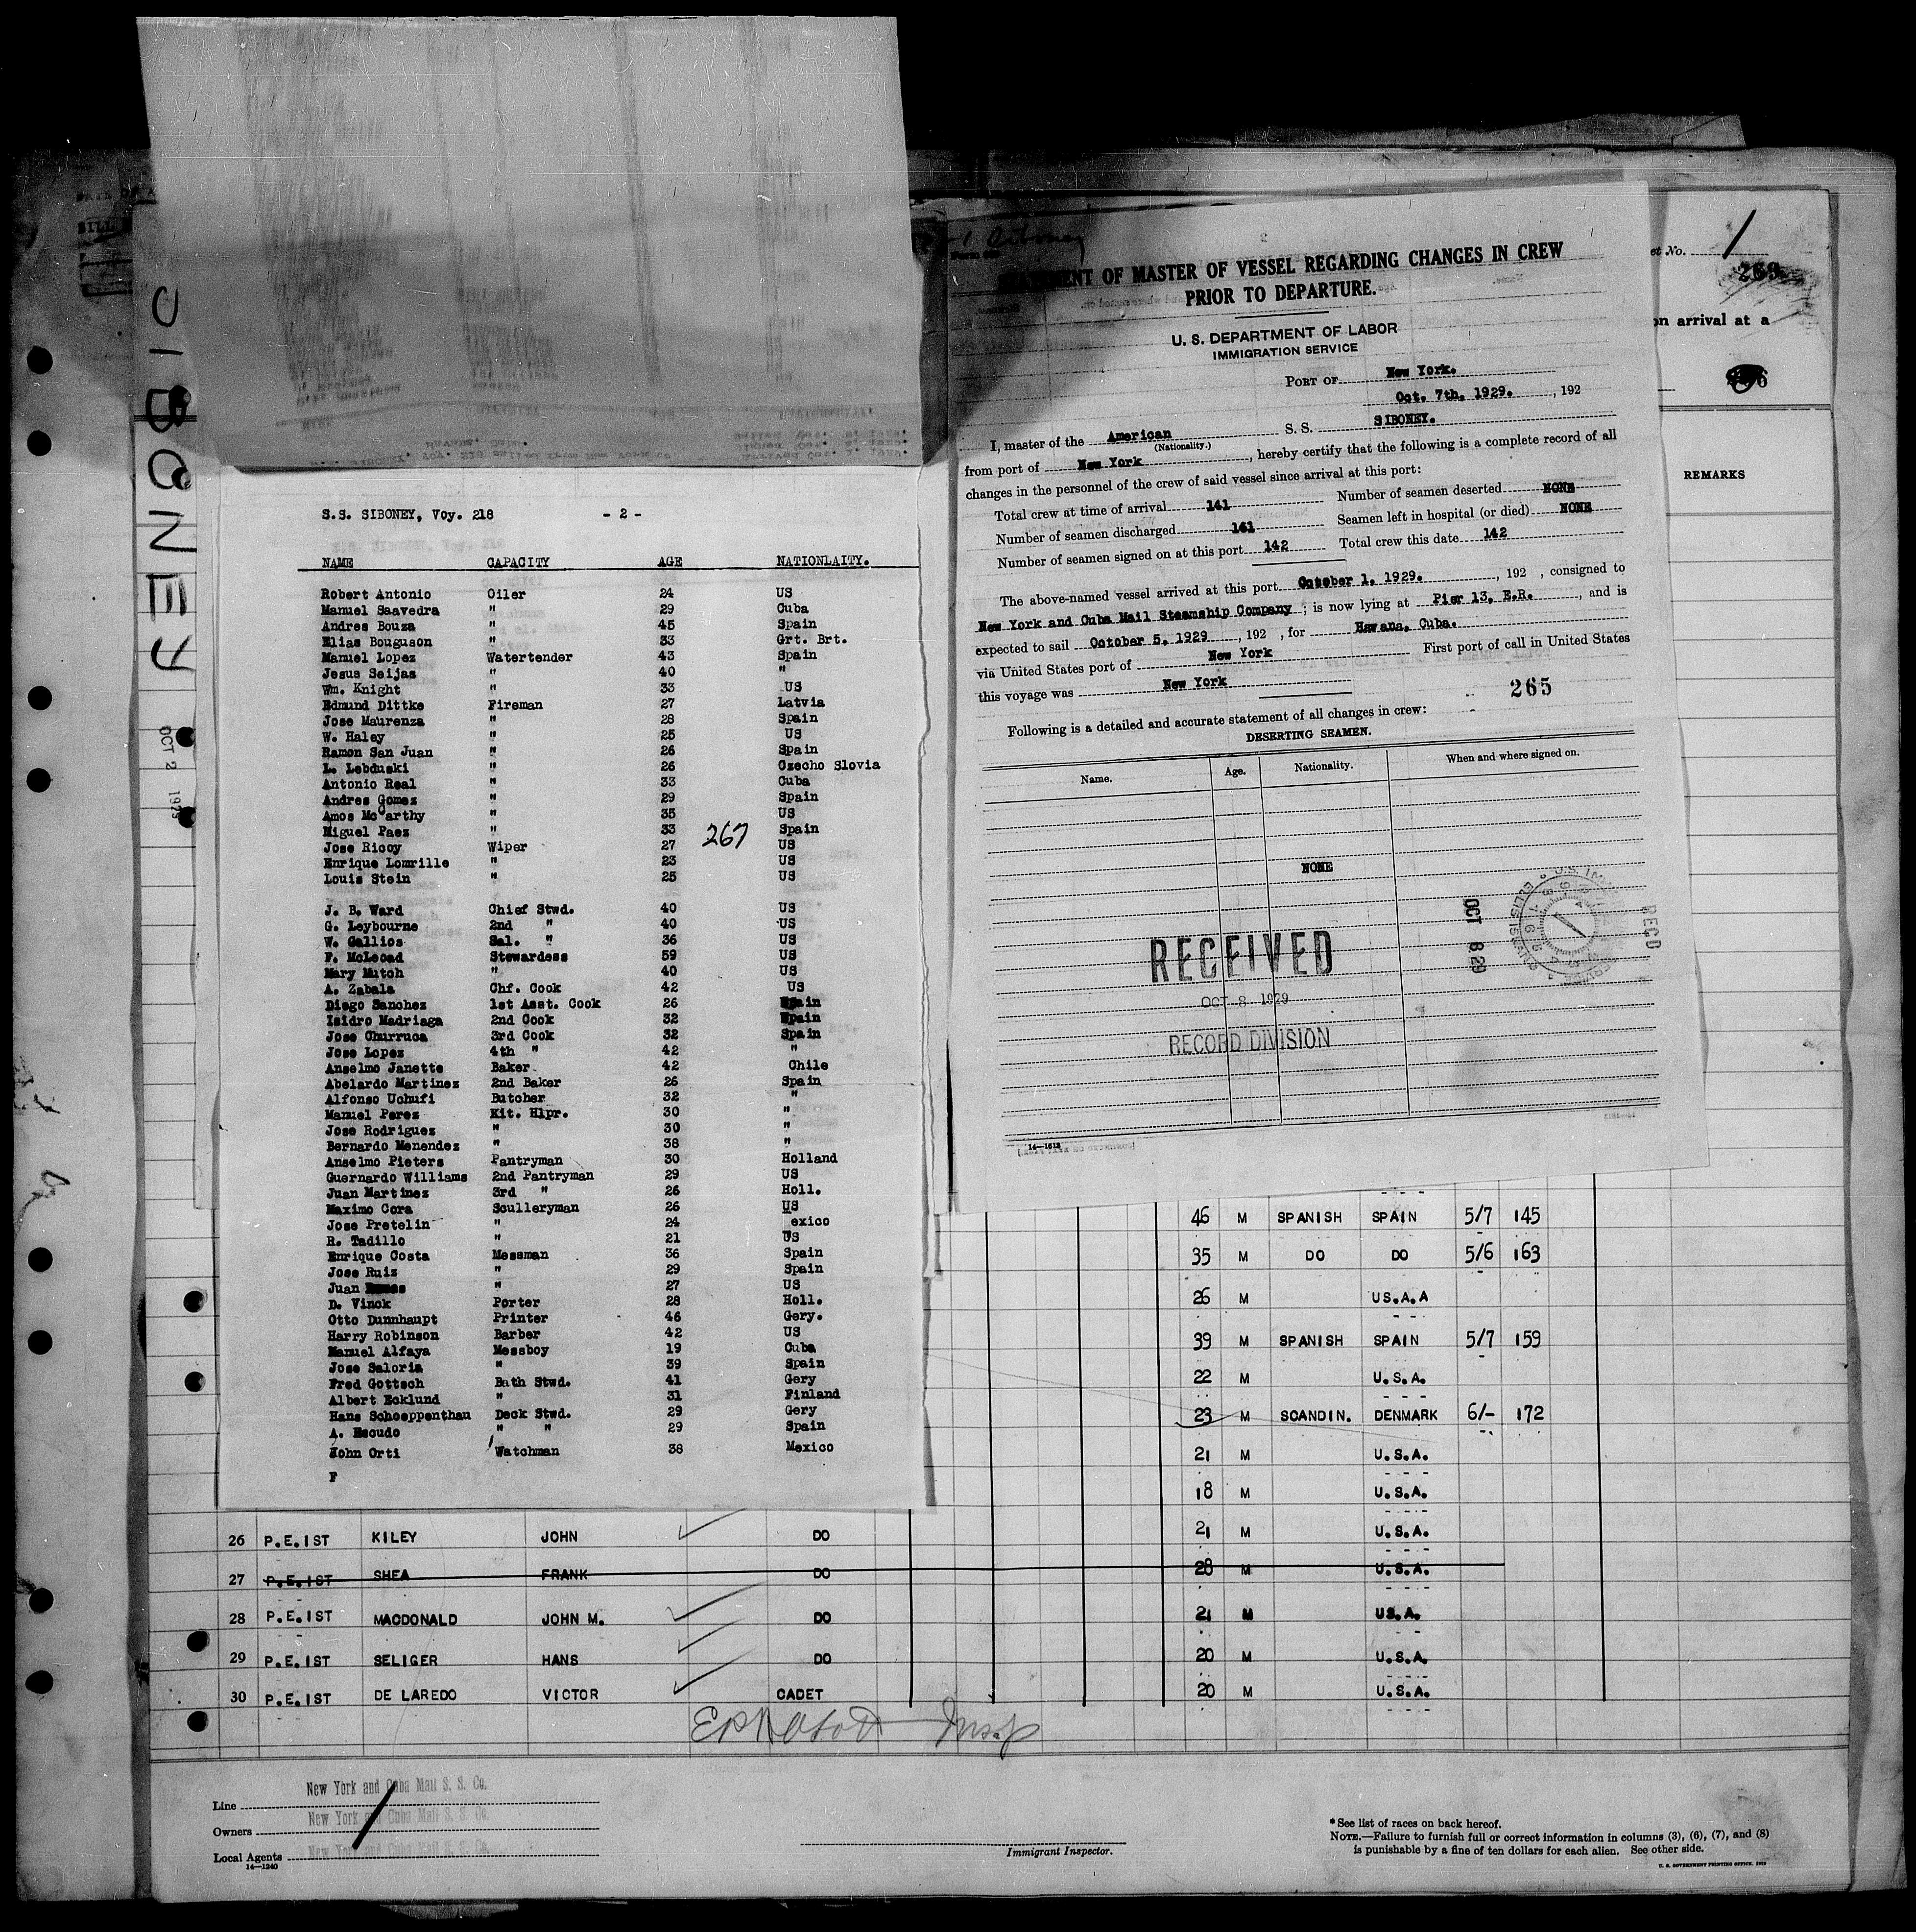 SIBONEY
OCT 2 1929
S.S. SIBONEY, Voy. 218 - 2 -
NAME CAPACITY AGE NATIONLAITY.
Robert Antonio Oiler 24 US
Manuel Saavedra " 29 Cuba
Andres Bouza " 45 Spain
Elias Bouguson " 33 Grt. Brt.
Manuel Lopez Watertender 43 Spain
Jesus Seijas " 40 "
Wm. Knight " 33 US
Edmund Dittke Fireman 27 Latvia
Jose Maurenza " 28 Spain
W. Haley " 25 US
Ramon San Juan " 26 Spain
L. Lebduski " 26 Czecho Slovia
Antonio Real " 33 Cuba
Andres Gomez " 29 Spain
Amos McCarthy " 35 US
Miguel Paez " 33 Spain
267
Jose Ricoy Wiper 27 US
Enrique Lomrille " 23 US
Louis Stein " 25 US
J. B. Ward Chief Stwd. 40 US
G. Leybourne 2nd " 40 US
W. Gallios Sal. " 36 US
F. McLeoad Stewardess 59 US
Mary Mutch " 40 US
A. Zabala Chf. Cook 42 US
Diego Sanchez 1st Asst. Cook 26 Spain
Isidro Madriaga 2nd Cook 32 Spain
Jose Churruca 3rd Cook 32 Spain
Jose Lopez 4th " 42 "
Anselmo Janette Baker 42 Chile
Abelardo Martinez 2nd Baker 26 Spain
Alfonso Uchufi Butcher 32 "
Manuel Perez Kit. Hlpr. 30 "
Jose Rodriguez " 30 "
Bernardo Menendez " 38 "
Anselmo Pieters Pantryman 30 Holland
Guernardo Williams 2nd Pantryman 29 US
Juan Martinez 3rd " 26 Holl.
Maximo Cora Sculleryman 26 US
Jose Pretelin " 24 exico
R. Tadillo " 21 US
Enrique Costa Messman 36 Spain
Jose Ruiz " 29 Spain
Juan " 27 US
D. Vinck Porter 28 Holl.
Otto Dunnhaupt Printer 46 Gery.
Harry Robinson Barber 42 US
Manuel Alfaya Messboy 19 Cuba
Jose Saloria " 39 Spain
Fred Gottsch Bath Stwd. 41 Gery
Albert Ecklund " 31 Finland
Hans Schoeppenthau Deck Stwd. 29 Gery
A. Escudo " " 29 Spain
John Orti Watchman 38 Mexico
F
STATEMENT OF MASTER OF VESSEL REGARDING CHANGES IN CREW
PRIOR TO DEPARTURE.
U. S. DEPARTMENT OF LABOR
IMMIGRATION SERVICE
PORT OF New York.
Oct. 7th, 1929. , 192
I, master of the American S. S. SIBONEY.
(Nationality.)
from port of New York , hereby certify that the following is a complete record of all
changes in the personnel of the crew of said vessel since arrival at this port:
Total crew at time of arrival 141 Number of seamen deserted NONE
Number of seamen discharged 141 Seamen left in hospital (or died) NONE
Number of seamen signed on at this port 142 Total crew this date 142
The above-named vessel arrived at this port October 1, 1929. , 192 , consigned to
New York and Cuba Mail Steamship Company ; is now lying at Pier 13, E.R. , and is
expected to sail October 5, 1929 , 192 , for Havana, Cuba.
via United States port of New York First port of call in United States
this voyage was New York
265
Following is a detailed and accurate statement of all changes in crew:
DESERTING SEAMEN.
Name. Age. Nationality. When and where signed on.
NONE
RECEIVED
OCT 8 1929
RECORD DIVISION
OCT 8 29
REC'D
14—1613
et No. 1
on arrival at a
REMARKS
46 M SPANISH SPAIN 5/7 145
35 M DO DO 5/6 163
26 M US.A.A
39 M SPANISH SPAIN 5/7 159
22 M U.S.A.
23 M SCANDIN. DENMARK 6/- 172
21 M U.S.A.
18 M U.S.A.
26 P.E.1ST KILEY JOHN DO 21 M U.S.A.
27 P.E.1ST SHEA FRANK DO 28 M U.S.A.
28 P.E.1ST MACDONALD JOHN M. DO 21 M US.A.
29 P.E.1ST SELIGER HANS DO 20 M U.S.A.
30 P.E.1ST DE LAREDO VICTOR CADET 20 M U.S.A.
Insp
Line New York and Cuba Mail S. S. Co.
Owners New York and Cuba Mail S. S. Co.
Local Agents New York and Cuba Mail S. S. Co.
14—1240
Immigrant Inspector.
*See list of races on back hereof.
NOTE.—Failure to furnish full or correct information in columns (3), (6), (7), and (8)
is punishable by a fine of ten dollars for each alien. See other side.
U. S. GOVERNMENT PRINTING OFFICE. 1929